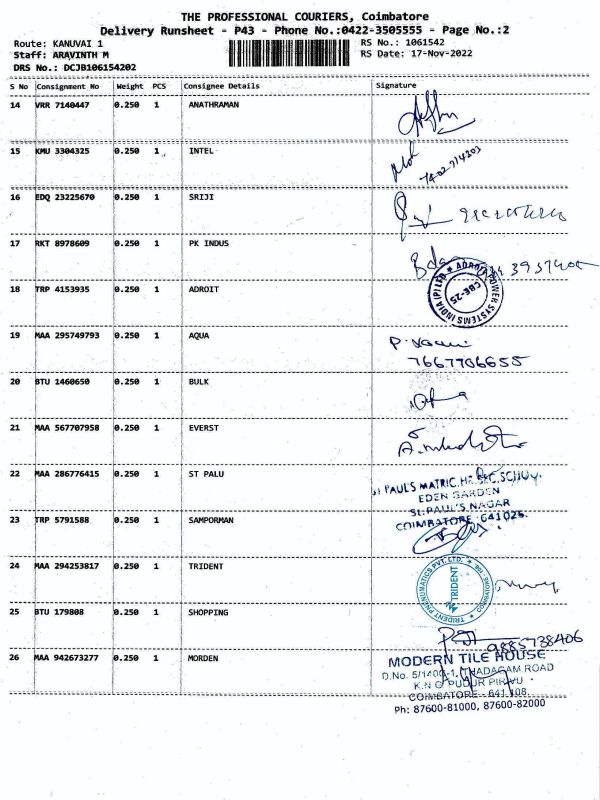 THE PROFESSIONAL COURIERS, Coimbatore
Delivery Runsheet - P43 - Phone No.:0422-3505555 - Page No.:2
Route: KANUVAI 1 RS No.: 1061542
Staff: ARAVINTH M RS Date: 17-Nov-2022
DRS No.: DCJB106154202
S No Consignment No Weight PCS Consignee Details Signature
14 VRR 7140447 0.250 1 ANATHRAMAN
15 KMU 3304325 0.250 1 INTEL
16 EDQ 23225670 0.250 1 SRIJI
17 RKT 8978609 0.250 1 PK INDUS
18 TRP 4153935 0.250 1 ADROIT
ADROIT POWER SYSTEMS INDIA (P) LTD
CBE-25
19 MAA 295749793 0.250 1 AQUA
7667706655
20 BTU 1460650 0.250 1 BULK
21 MAA 567707958 0.250 1 EVERST
22 MAA 286776415 0.250 1 ST PALU
ST PAUL'S MATRIC.HR.SEC.SCHOOL
EDEN GARDEN
ST.PAUL'S NAGAR
23 TRP 5791588 0.250 1 SAMPORMAN
COIMBATORE 641025.
24 MAA 294253817 0.250 1 TRIDENT
TRIDENT PNEUMATICS PVT. LTD.
TRIDENT
25 BTU 179808 0.250 1 SHOPPING
9885738406
26 MAA 942673277 0.250 1 MORDEN
MODERN TILE HOUSE
D.No. 5/1400-1, THADAGAM ROAD
K.N.G PUDUR PIRIVU
COIMBATORE - 641 108.
Ph: 87600-81000, 87600-82000